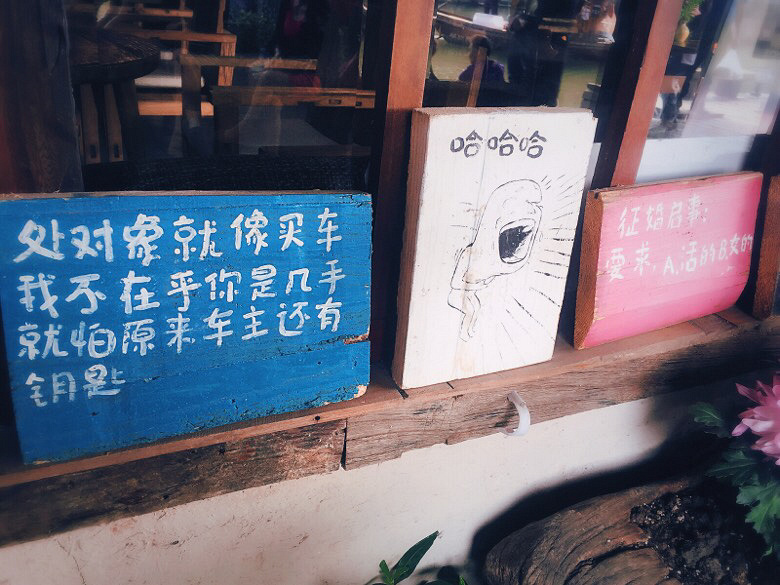 处对象就像买车
我不在乎你是几手
就怕原来车主还有
钥匙
哈哈哈
征婚启事:
要求.A.活的B.女的